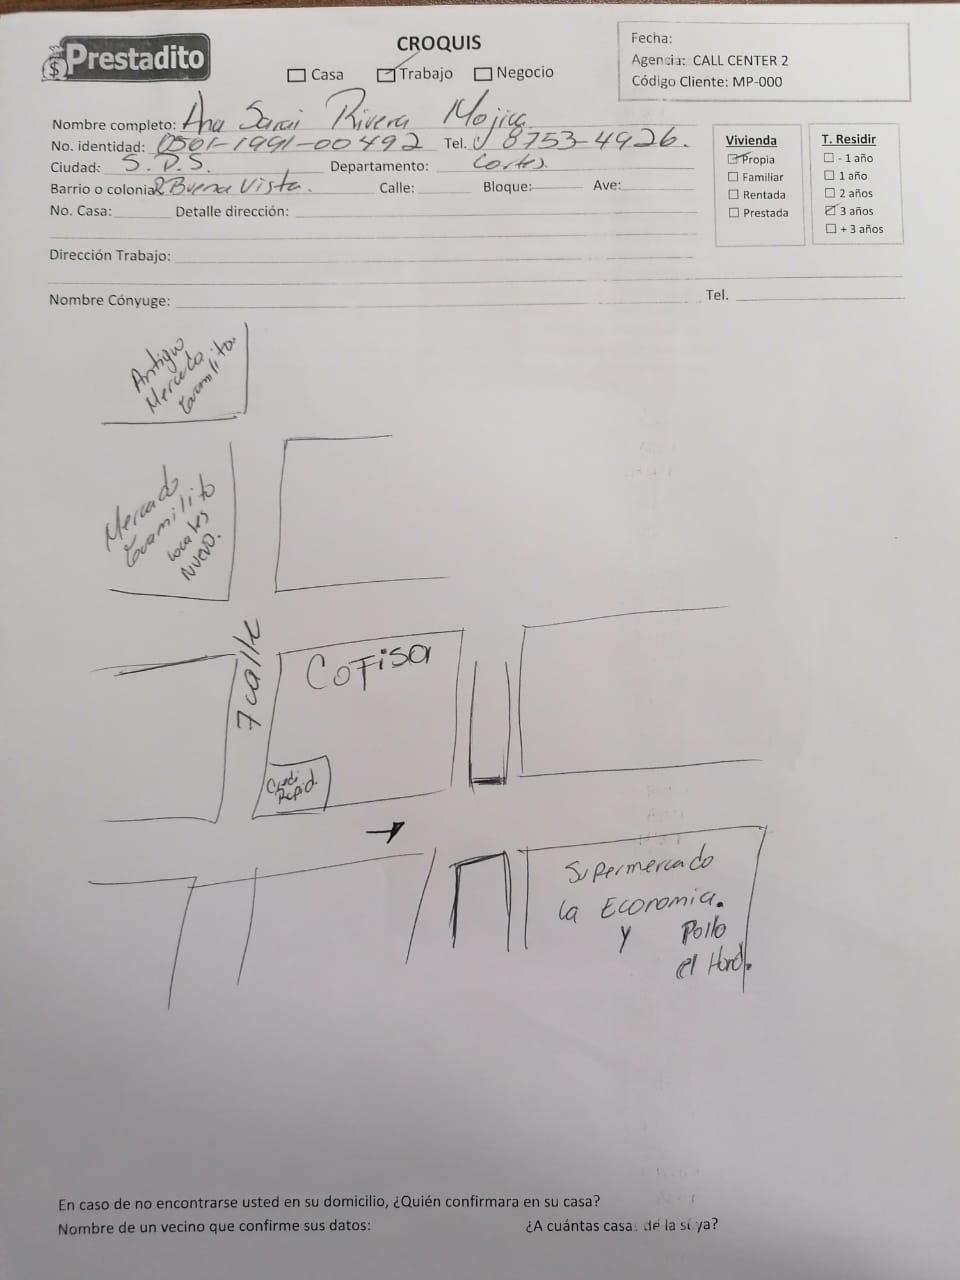 Prestadito
CROQUIS
Casa Trabajo Negocio
Fecha:
Agencia: CALL CENTER 2
Código Cliente: MP-000
Nombre completo: Ana Sarai Rivera Mojica
No. identidad: 0501-1991-00492 Tel. 8753-4926.
Ciudad: S.P.S. Departamento: Cortes.
Barrio o colonia Buena Vista. Calle: Bloque: Ave:
No. Casa: Detalle dirección:
Dirección Trabajo:
Nombre Cónyuge: Tel.
Vivienda
Propia
Familiar
Rentada
Prestada
T. Residir
- 1 año
1 año
2 años
3 años
+ 3 años
Antiguo
Mercado
Mercado
locales
Nuevo.
7 calle
Cofisa
Credi
Rapid.
Supermercado
la Economia.
y Pollo
el Hond.
En caso de no encontrarse usted en su domicilio, ¿Quién confirmara en su casa?
Nombre de un vecino que confirme sus datos: ¿A cuántas casas de la suya?